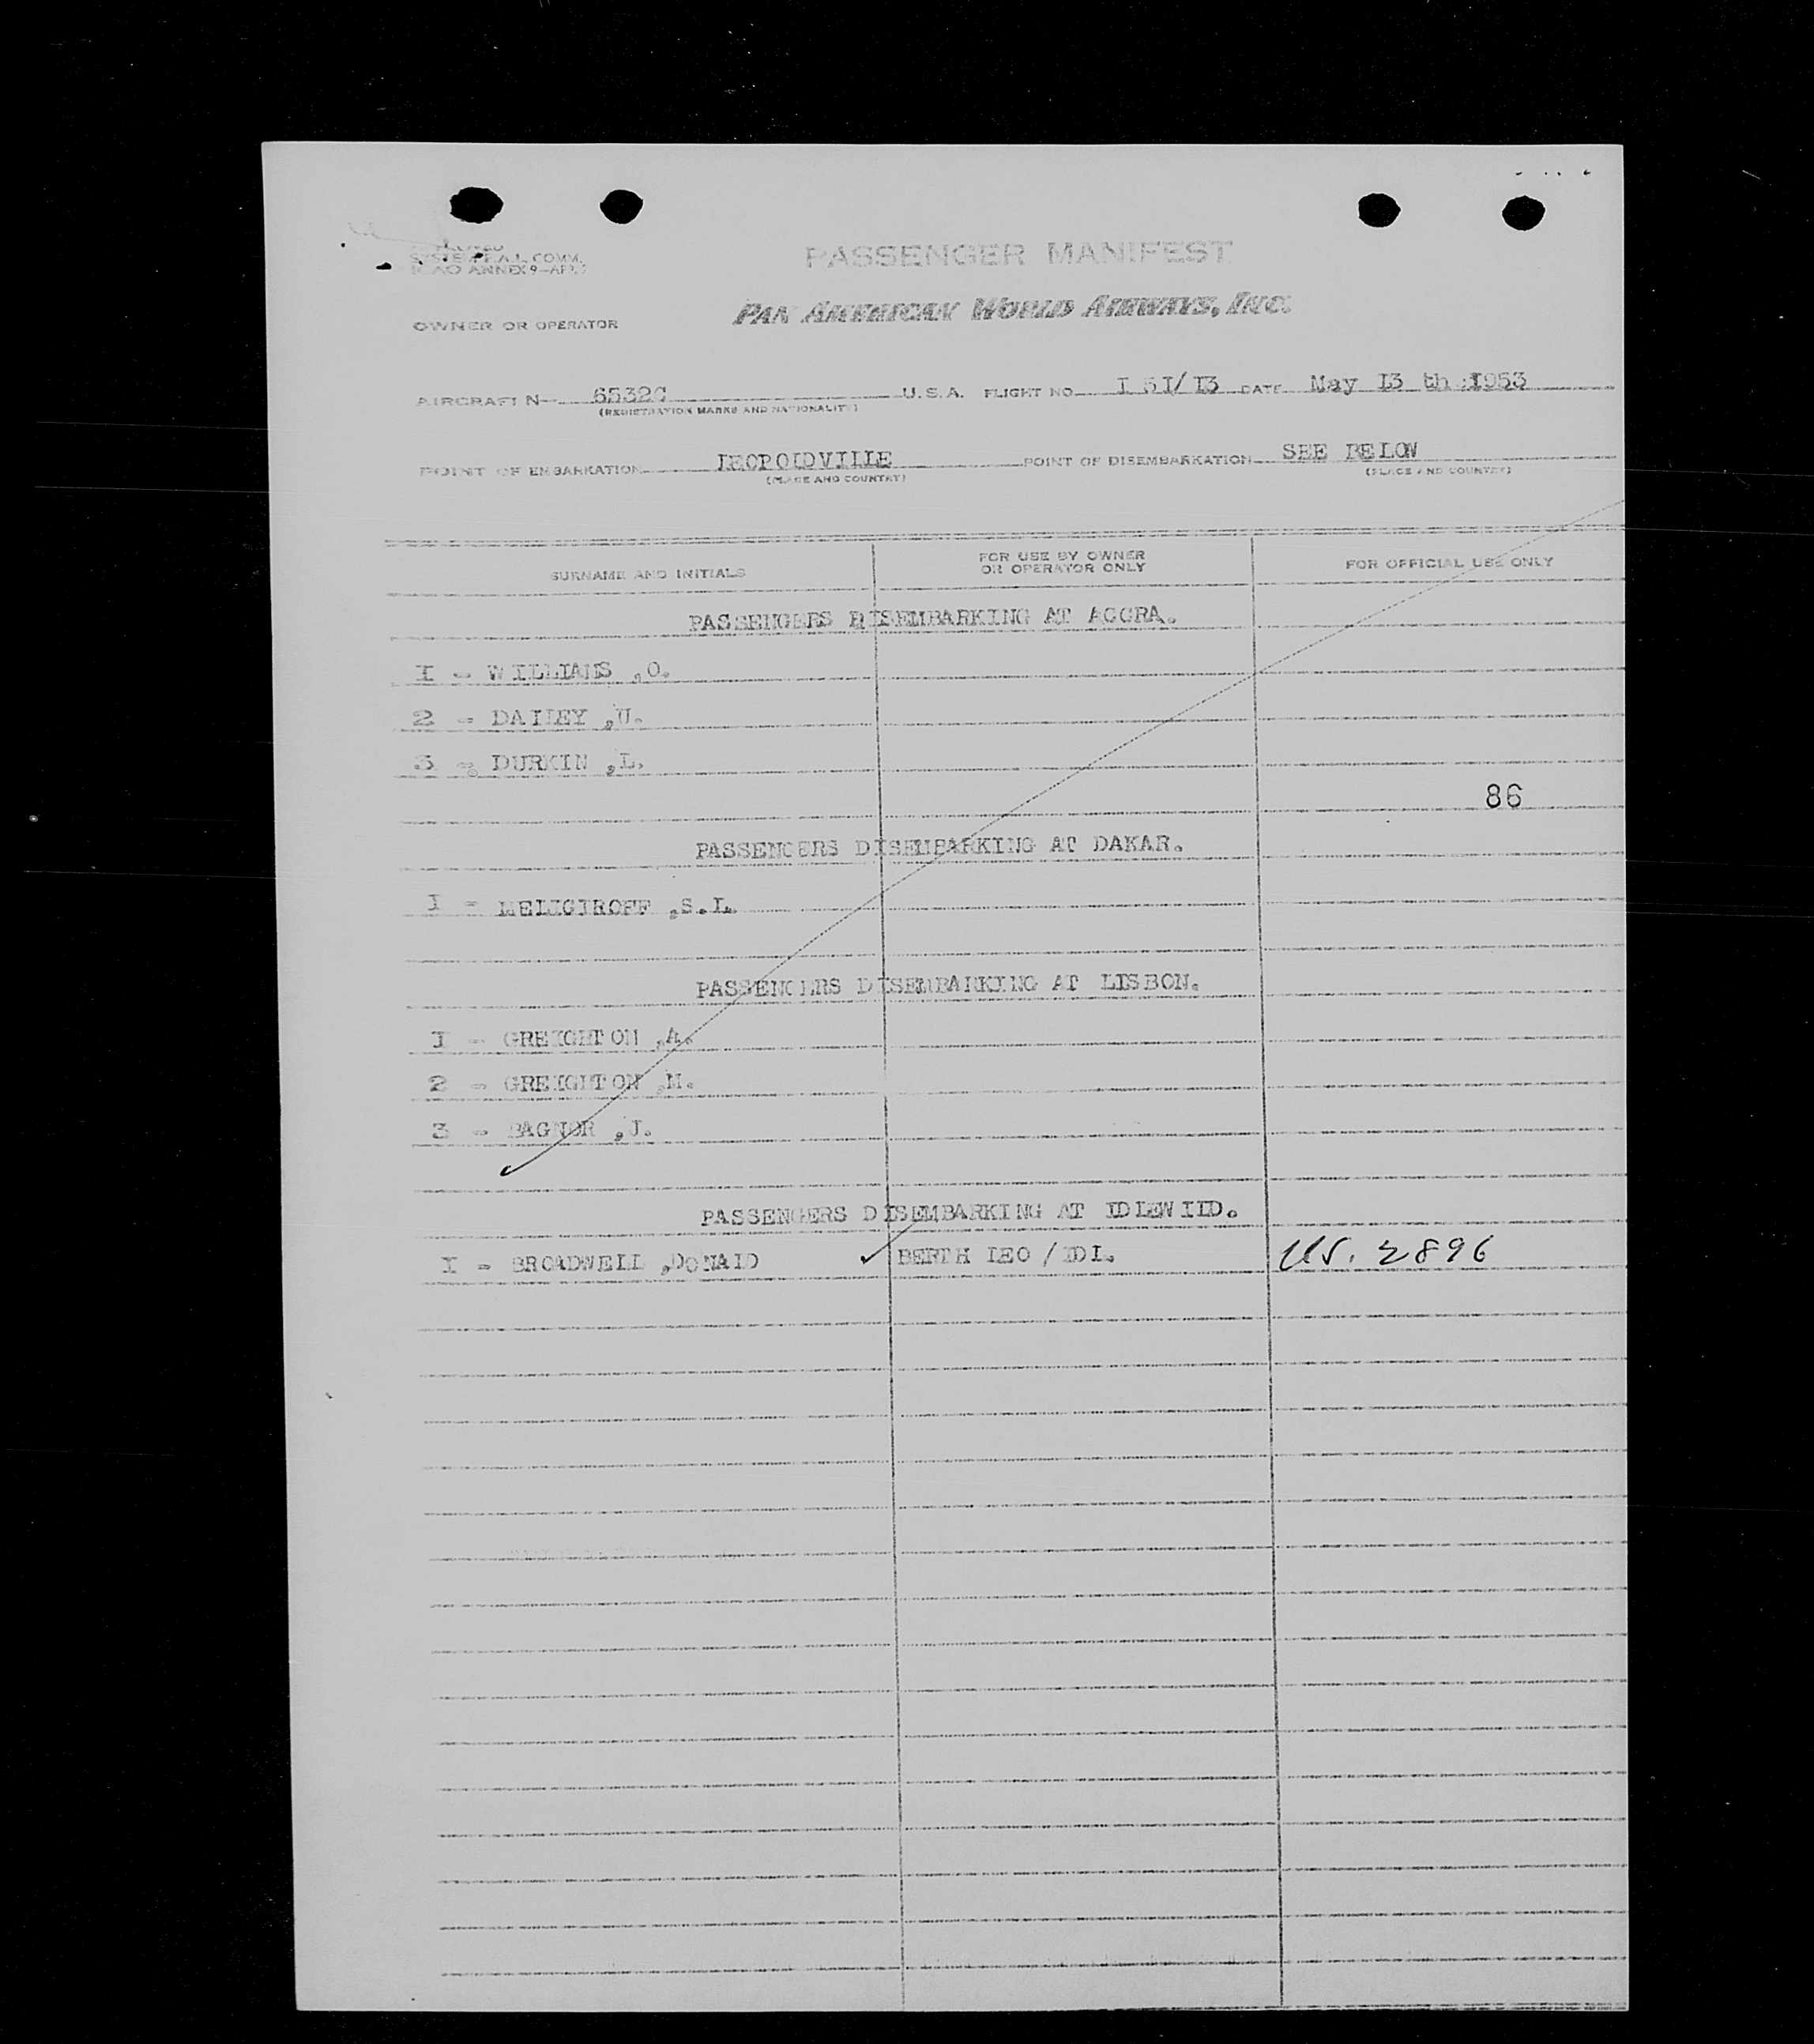 SYSTEM F.A.L. COMM.
ICAO ANNEX 9-APP.
PASSENGER MANIFEST
PAN AMERICAN WORLD AIRWAYS, INC.
OWNER OR OPERATOR
AIRCRAFT N- 6532C U.S.A. FLIGHT NO I5I/I3 DATE May I3 th I953
(REGISTRATION MARKS AND NATIONALITY)
POINT OF EMBARKATION LEOPOLDVILLE POINT OF DISEMBARKATION SEE BELOW
(PLACE AND COUNTRY) (PLACE AND COUNTRY)
SURNAME AND INITIALS FOR USE BY OWNER OR OPERATOR ONLY FOR OFFICIAL USE ONLY
PASSENGERS DISEMBARKING AT ACCRA.
I - WILLIAMS ,O.
2 - DAILEY ,U.
3 - DURKIN ,L.
86
PASSENGERS DISEMBARKING AT DAKAR.
I - MELIGIROFF ,S.L.
PASSENGERS DISEMBARKING AT LISBON.
I - CREIGHTON ,A.
2 - CREIGHTON ,M.
3 - BAGNOR ,J.
PASSENGERS DISEMBARKING AT IDLEWILD.
I - BROADWELL ,DONALD BERTH LEO / IDL. US. 2896